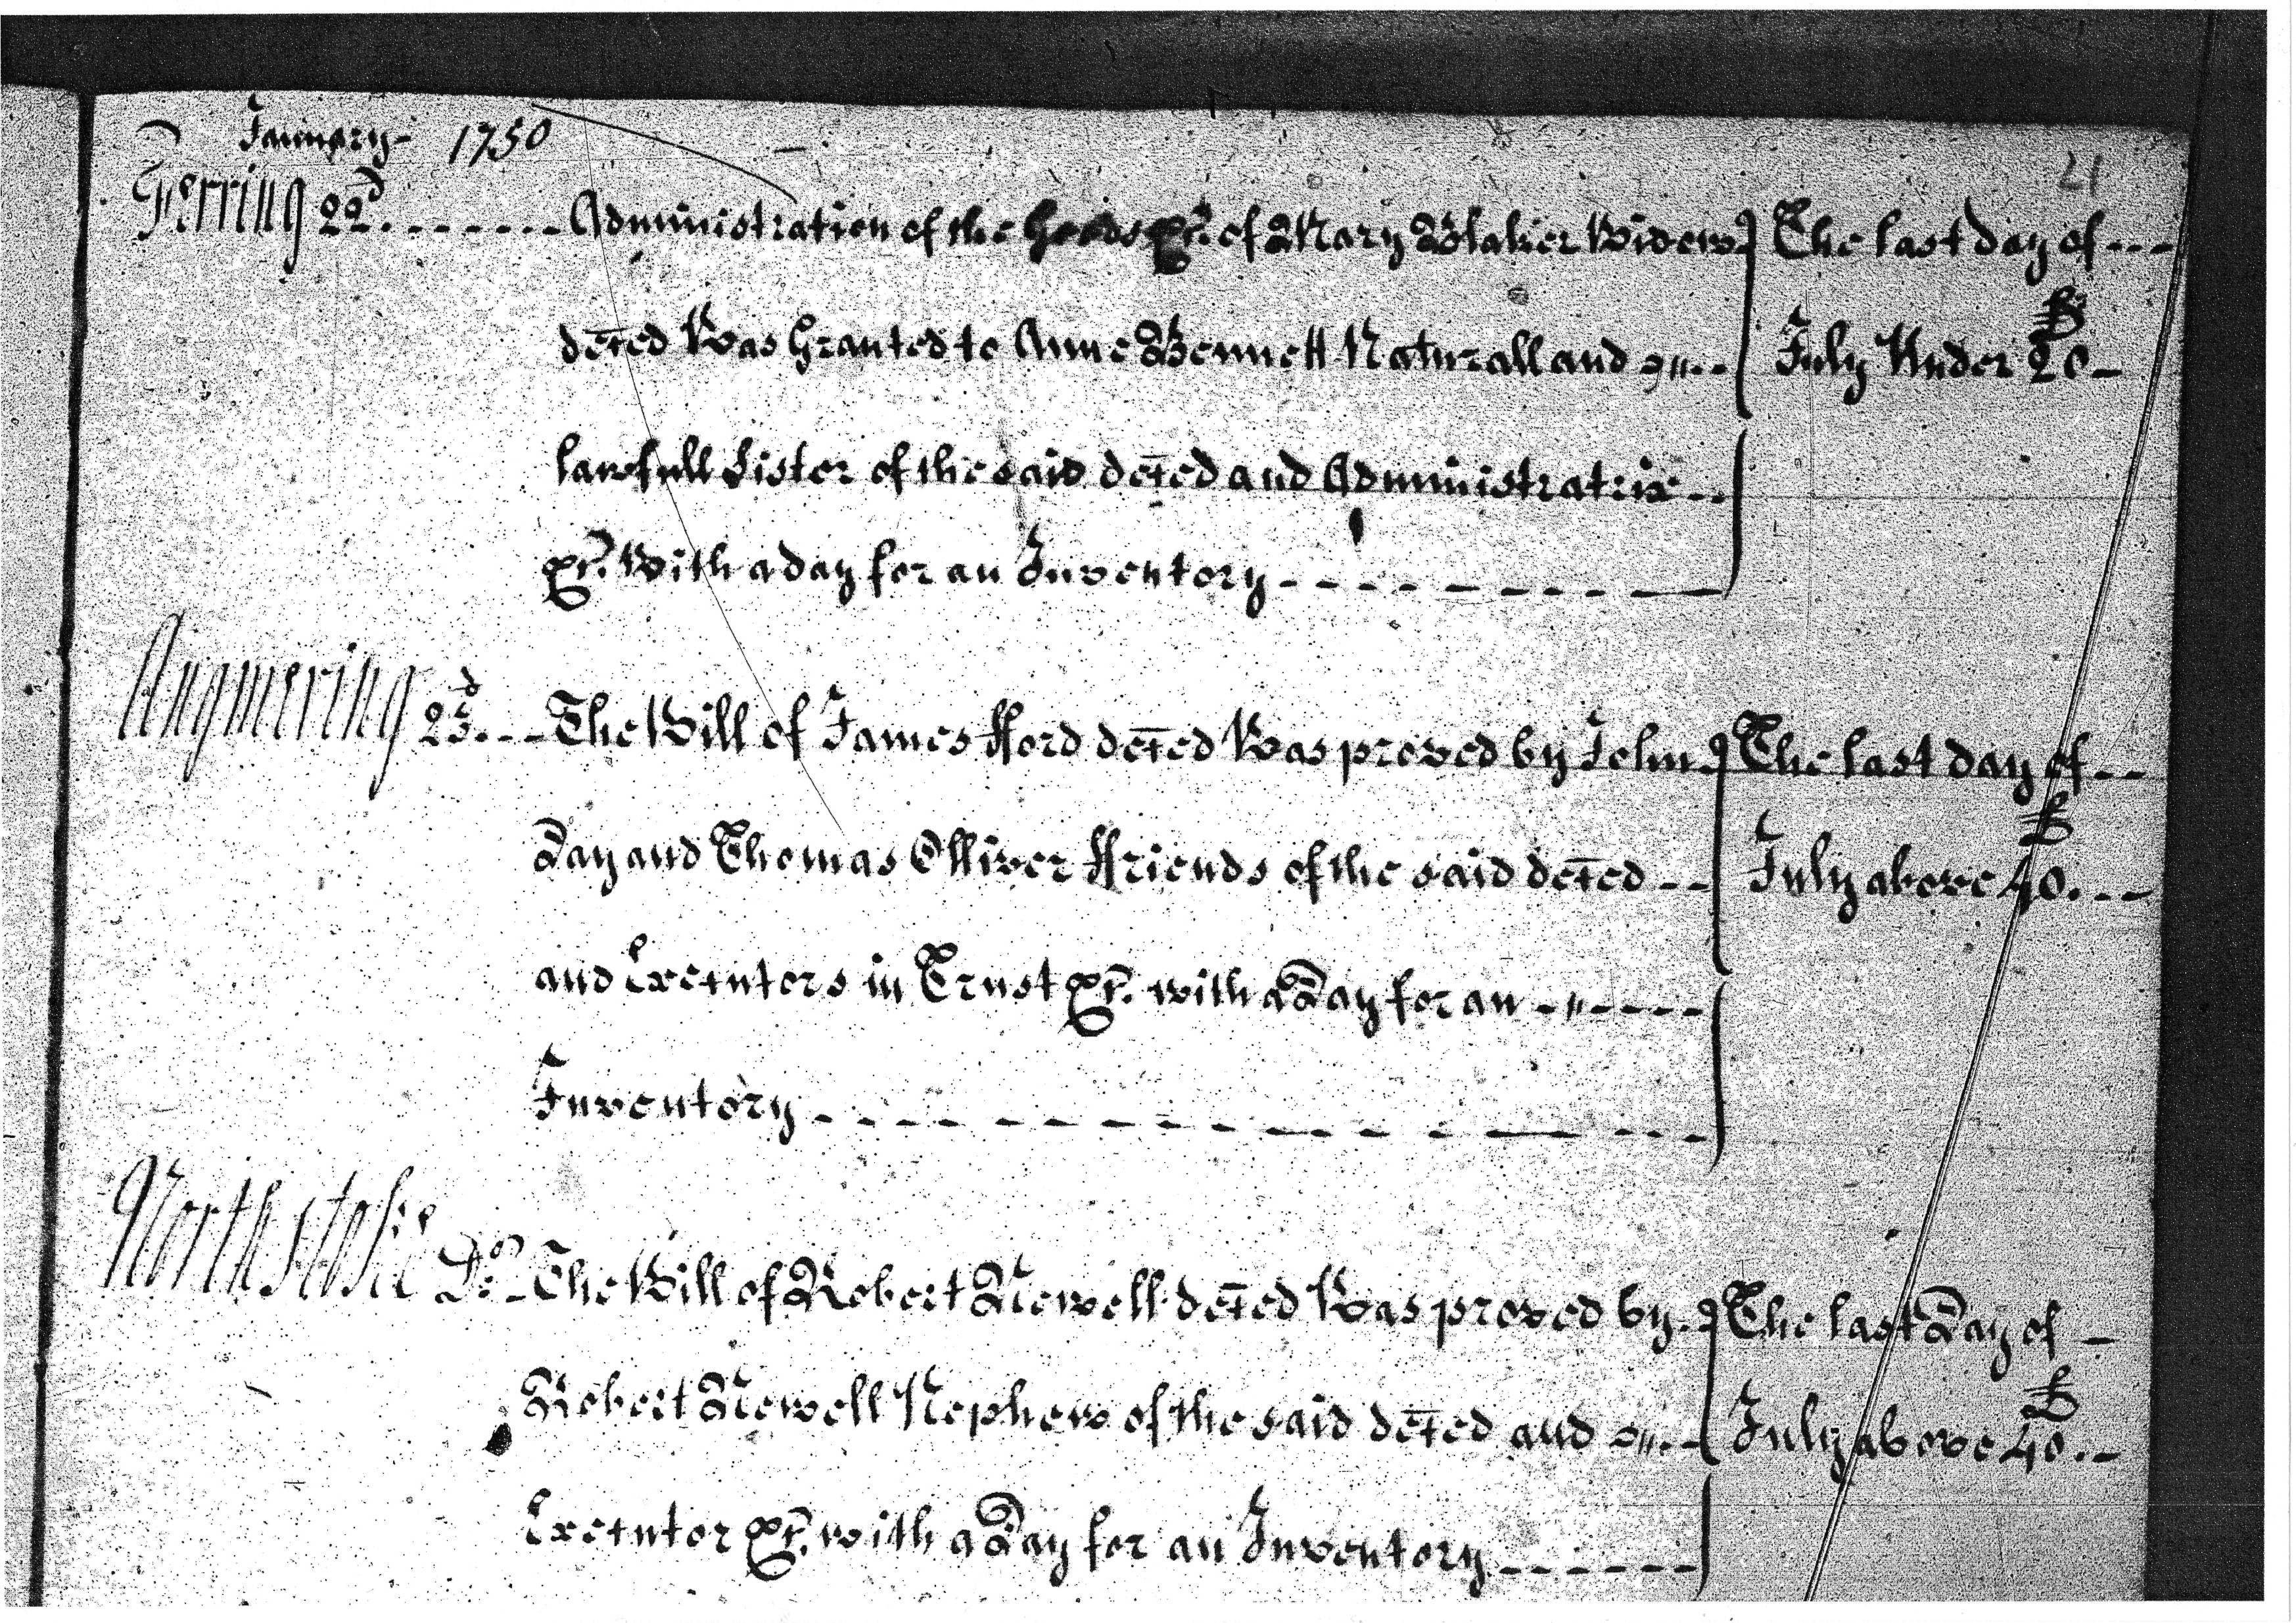 January 1750
21
Ferring 22d. - - - - - - - Administration of the Goods &c. of Mary Blaker Widow } The last day of - - -
deced Was Granted to Anne Bennett Naturall and - - } July Under £20 -
lawfull Sister of the said deced and Administratrix - -
&c. With a day for an Inventory - - - - - - - - -
Angmering 23d. - - - The Will of James fford deced Was proved by John } The last day of - -
Day and Thomas Olliver ffriends of the said deced - - } July above £40. - -
and Executors in Trust &c. with a Day for an - - - - -
Inventory - - - - - - - - - - - - - - -
North stoke Do. - The Will of Robert Newell deced Was proved by. } The last Day of -
Robert Newell Nephew of the said deced and - - } July above £40. - -
Executor &c. with a Day for an Inventory - - - - - -